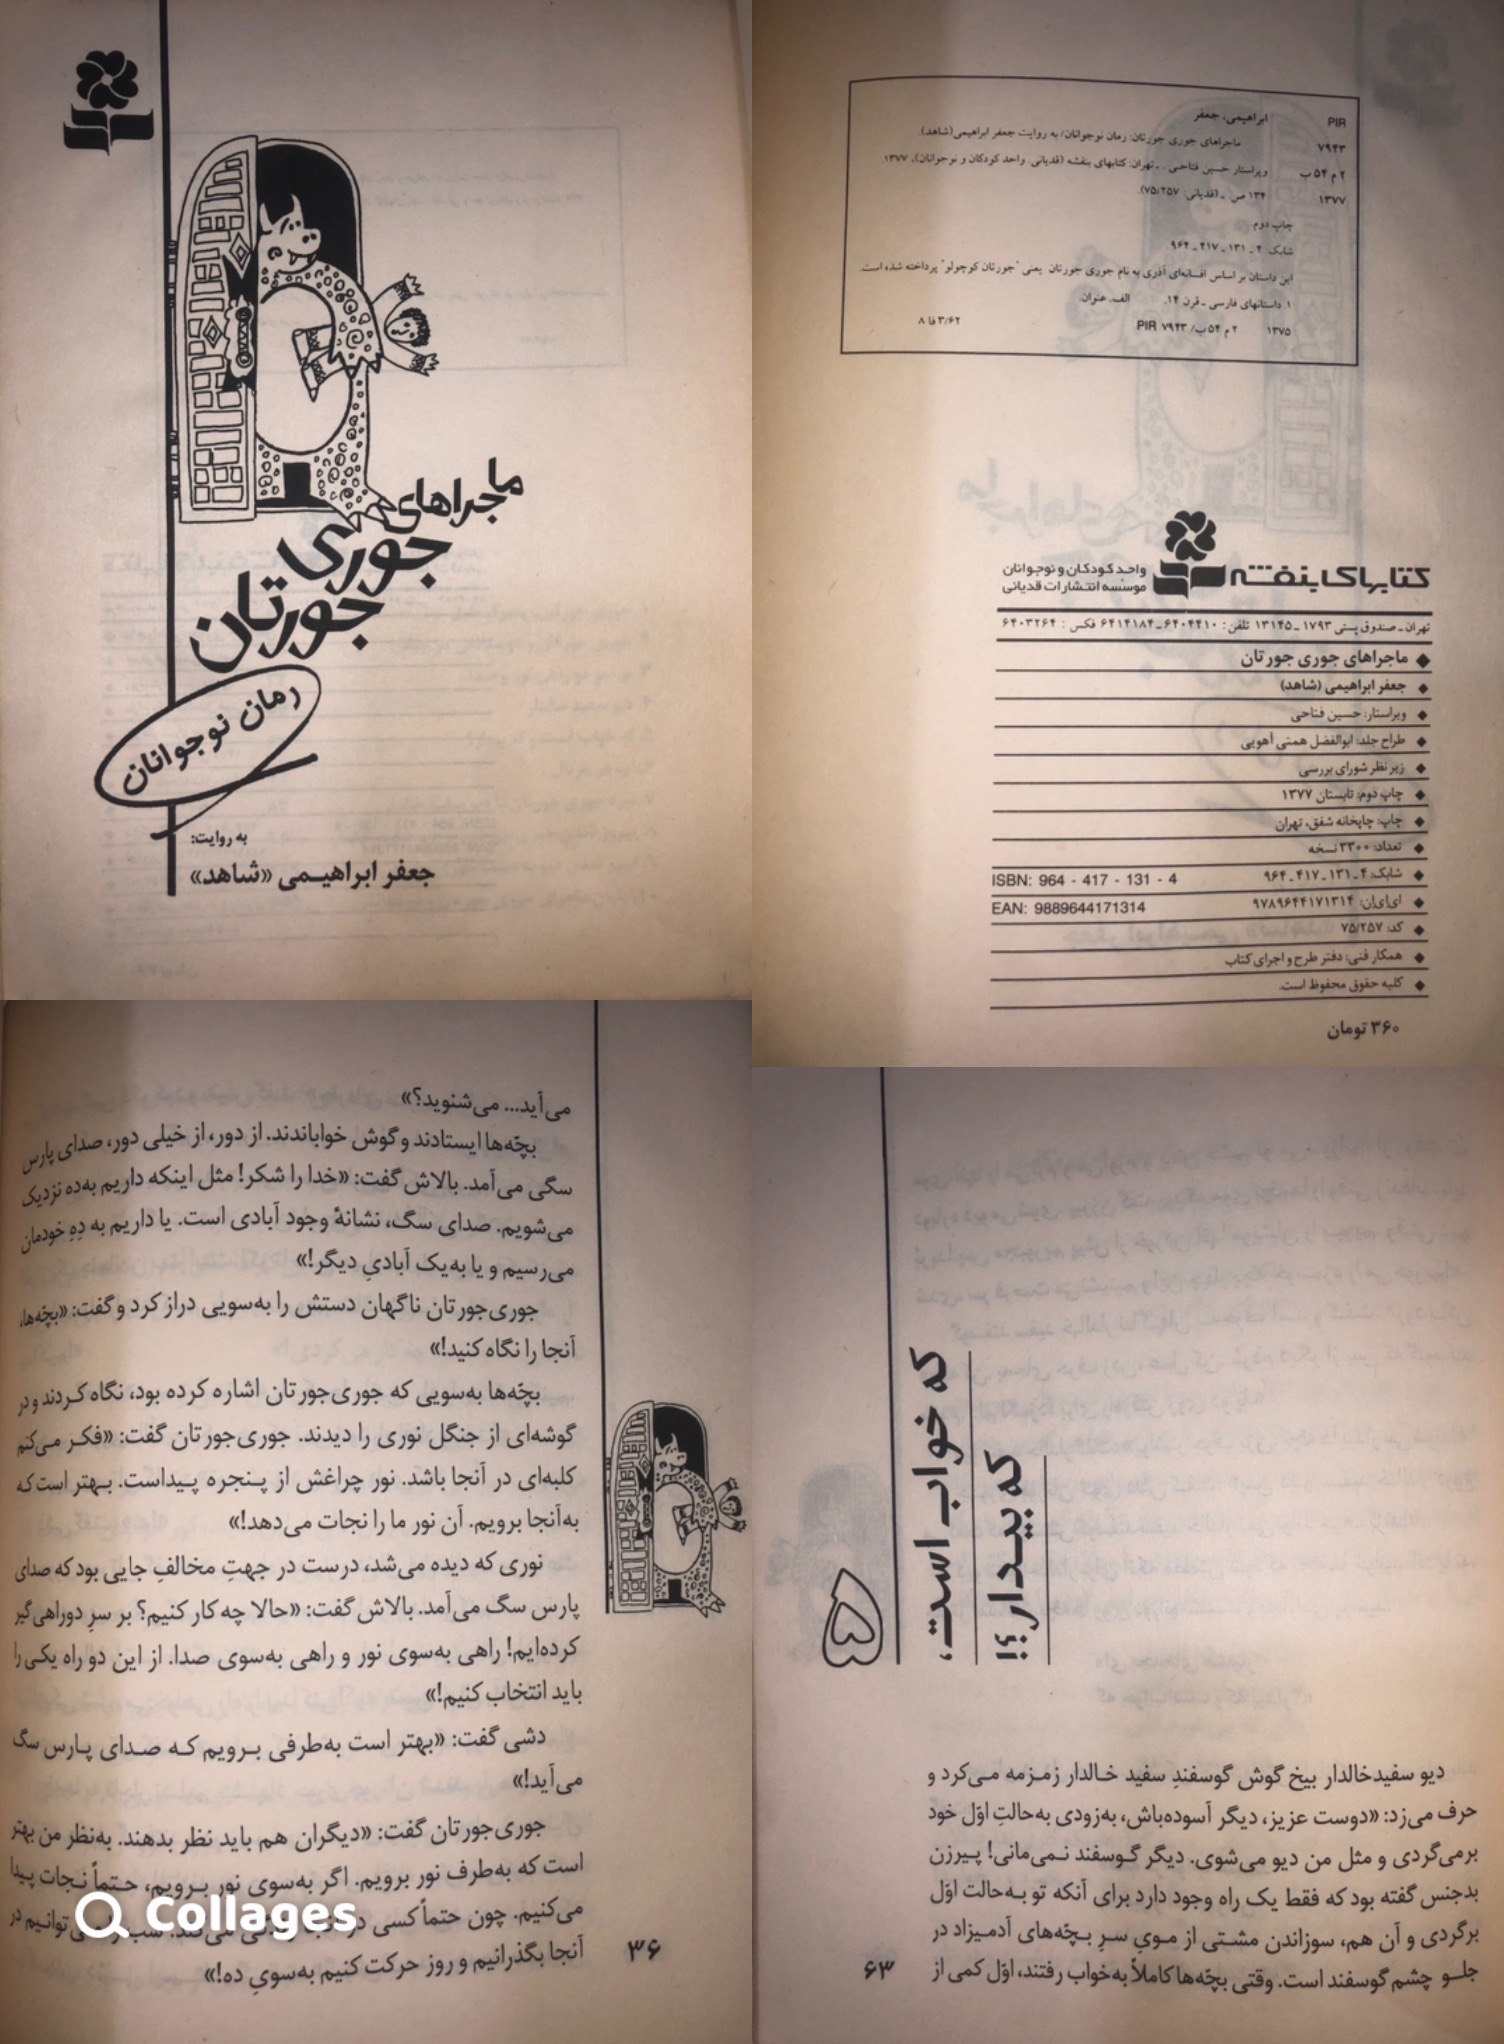 ماجراهای
جوری
جورتان
رمان نوجوانان
به روایت:
جعفر ابراهیمی «شاهد»
PIR
۷۹۴۳
۲ م ۵۴ ب
۱۳۷۷
ابراهیمی، جعفر
ماجراهای جوری جورتان: رمان نوجوانان/ به روایت جعفر ابراهیمی(شاهد).
ویراستار حسین فتاحی. ـ تهران: کتابهای بنفشه (قدیانی. واحد کودکان و نوجوانان)، ۱۳۷۷.
۱۳۴ ص. ـ (قدیانی: ۷۵/۲۵۷).
چاپ دوم.
شابک: ۴ ـ ۱۳۱ ـ ۴۱۷ ـ ۹۶۴
این داستان بر اساس افسانه‌ای آذری به نام جوری جورتان یعنی "جورتان کوچولو" پرداخته شده است.
۱. داستانهای فارسی ـ قرن ۱۴. الف. عنوان.
۱۳۷۵ ۲ م ۵۴ ب/ ۷۹۴۳ PIR ۸ فا ۳/۶۲
کتابهای بنفشه
واحد کودکان و نوجوانان
موسسه انتشارات قدیانی
تهران ـ صندوق پستی ۱۷۹۳ ـ ۱۳۱۴۵ تلفن: ۶۴۰۴۴۱۰ ـ ۶۴۱۴۱۸۴ فکس: ۶۴۰۳۲۶۴
◆ ماجراهای جوری جورتان
◆ جعفر ابراهیمی (شاهد)
◆ ویراستار: حسین فتاحی
◆ طراح جلد: ابوالفضل همتی آهویی
◆ زیر نظر شورای بررسی
◆ چاپ دوم: تابستان ۱۳۷۷
◆ چاپ: چاپخانه شفق، تهران
◆ تعداد: ۳۳۰۰ نسخه
◆ شابک: ۴ ـ ۱۳۱ ـ ۴۱۷ ـ ۹۶۴ ISBN: 964 - 417 - 131 - 4
◆ ای‌ای‌ان: ۹۷۸۹۶۴۴۱۷۱۳۱۴ EAN: 9889644171314
◆ کد: ۷۵/۲۵۷
◆ همکار فنی: دفتر طرح و اجرای کتاب
◆ کلیه حقوق محفوظ است.
۳۶۰ تومان
می‌آید... می‌شنوید؟»
بچّه‌ها ایستادند و گوش خواباندند. از دور، از خیلی دور، صدای پارس
سگی می‌آمد. بالاش گفت: «خدا را شکر! مثل اینکه داریم به‌ده نزدیک
می‌شویم. صدای سگ، نشانهٔ وجود آبادی است. یا داریم به دِهِ خودمان
می‌رسیم و یا به‌یک آبادیِ دیگر!»
جوری‌جورتان ناگهان دستش را به‌سویی دراز کرد و گفت: «بچّه‌ها،
آنجا را نگاه کنید!»
بچّه‌ها به‌سویی که جوری‌جورتان اشاره کرده بود، نگاه کردند و در
گوشه‌ای از جنگل نوری را دیدند. جوری‌جورتان گفت: «فکر می‌کنم
کلبه‌ای در آنجا باشد. نور چراغش از پنجره پیداست. بهتر است که
به‌آنجا برویم. آن نور ما را نجات می‌دهد!»
نوری که دیده می‌شد، درست در جهتِ مخالفِ جایی بود که صدای
پارس سگ می‌آمد. بالاش گفت: «حالا چه کار کنیم؟ بر سرِ دوراهی گیر
کرده‌ایم! راهی به‌سوی نور و راهی به‌سوی صدا. از این دو راه یکی را
باید انتخاب کنیم!»
دشی گفت: «بهتر است به‌طرفی برویم که صدای پارس سگ
می‌آید!»
جوری‌جورتان گفت: «دیگران هم باید نظر بدهند. به‌نظر من بهتر
است که به‌طرف نور برویم. اگر به‌سوی نور برویم، حتماً نجات پیدا
می‌کنیم. چون حتماً کسی در توانیم در
آنجا بگذرانیم و روز حرکت کنیم به‌سویِ ده!»
۳۶
Collages
۵
که خواب است،
که بیدار؟!
دیو سفیدخالدار بیخ گوش گوسفندِ سفید خالدار زمزمه می‌کرد و
حرف می‌زد: «دوست عزیز، دیگر آسوده‌باش، به‌زودی به‌حالتِ اوّل خود
برمی‌گردی و مثل من دیو می‌شوی. دیگر گوسفند نمی‌مانی! پیرزن
بدجنس گفته بود که فقط یک راه وجود دارد برای آنکه تو به‌حالت اوّل
برگردی و آن هم، سوزاندن مشتی از مویِ سرِ بچّه‌های آدمیزاد در
جلو چشم گوسفند است. وقتی بچّه‌ها کاملاً به‌خواب رفتند، اوّل کمی از
۶۳